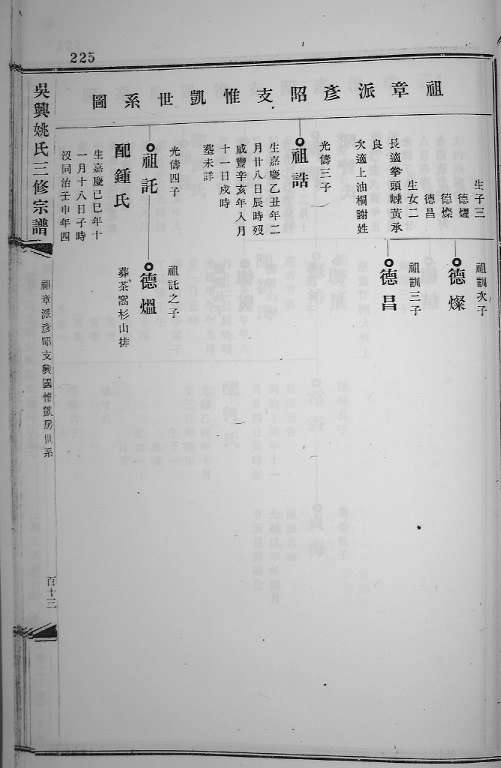 225
祖章派彥昭支惟凱世系圖
生子三
德燿
德燦
德昌
生女二
長適拳頭崠黃承
良
次適上油欄謝姓
祖誥
光儔三子
生嘉慶乙丑年二
月廿八日辰時歿
咸豐辛亥年八月
十一日戌時
墓未詳
祖託
光儔四子
配鍾氏
生嘉慶己巳年十
一月十八日子時
沒同治壬申年四
德燦
祖訓次子
德昌
祖訓三子
德熅
祖託之子
葬茶窩杉山排
吳興姚氏三修宗譜
祖章派彥昭支興國惟凱房世系
百十三